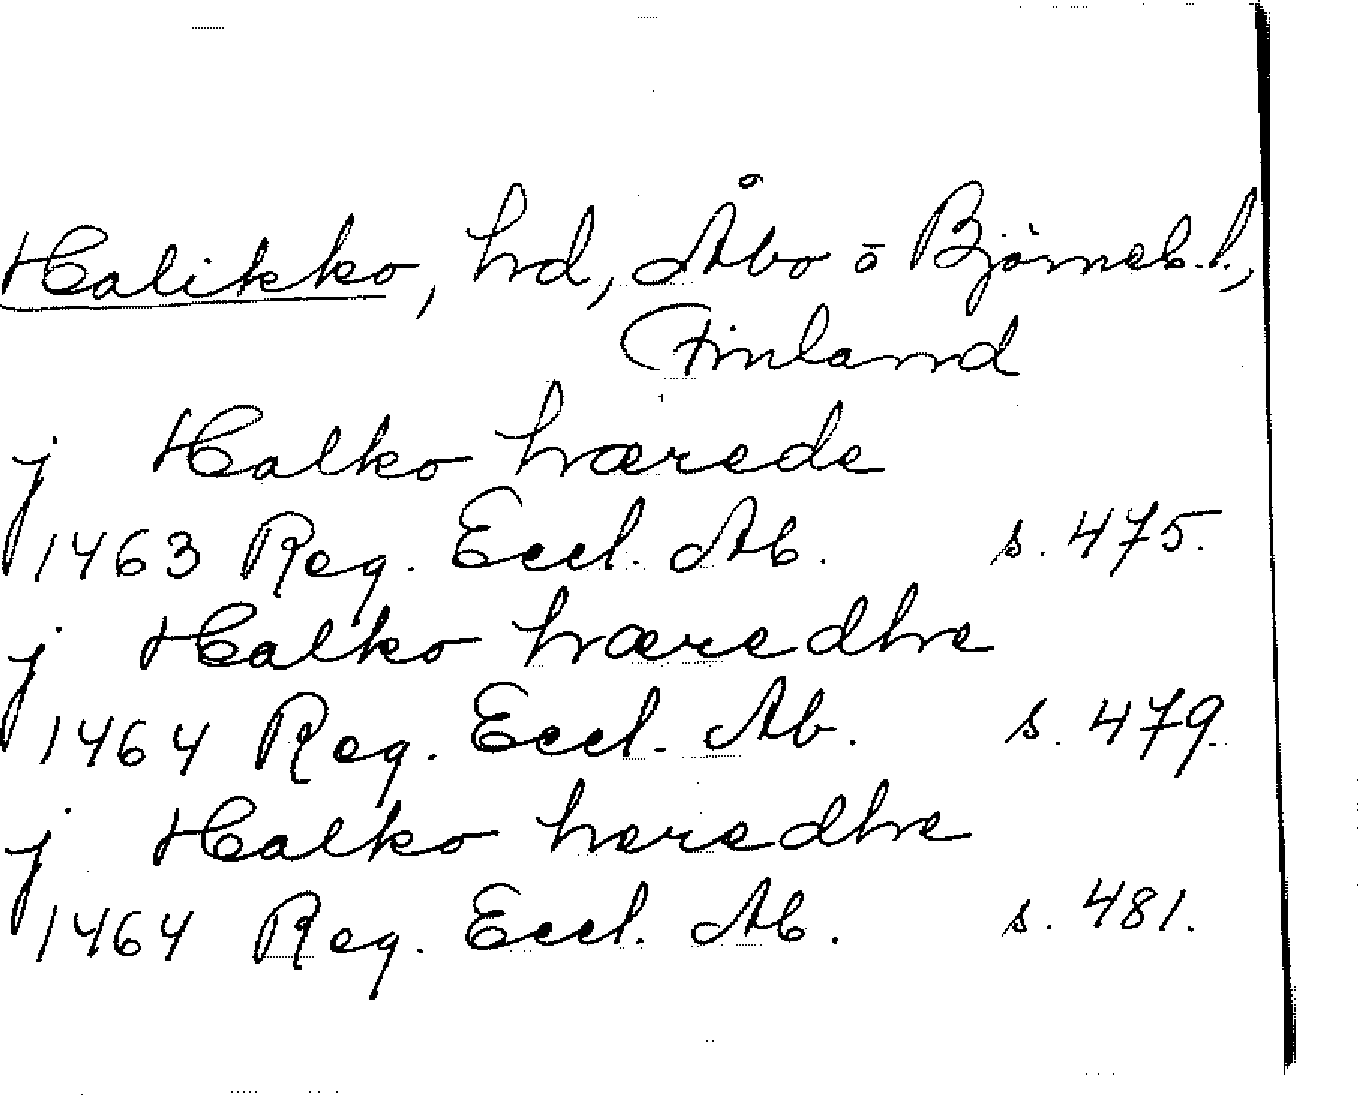 Halikko, hd, Åbo o Björneb. l.,
Finland
j Halko hærede
1463 Reg. Eccl. Ab. s. 475.
j Halko hæredhe
1464 Reg. Eccl. Ab. s. 479.
j Halko heredhe
1464 Reg. Eccl. Ab. s. 481.